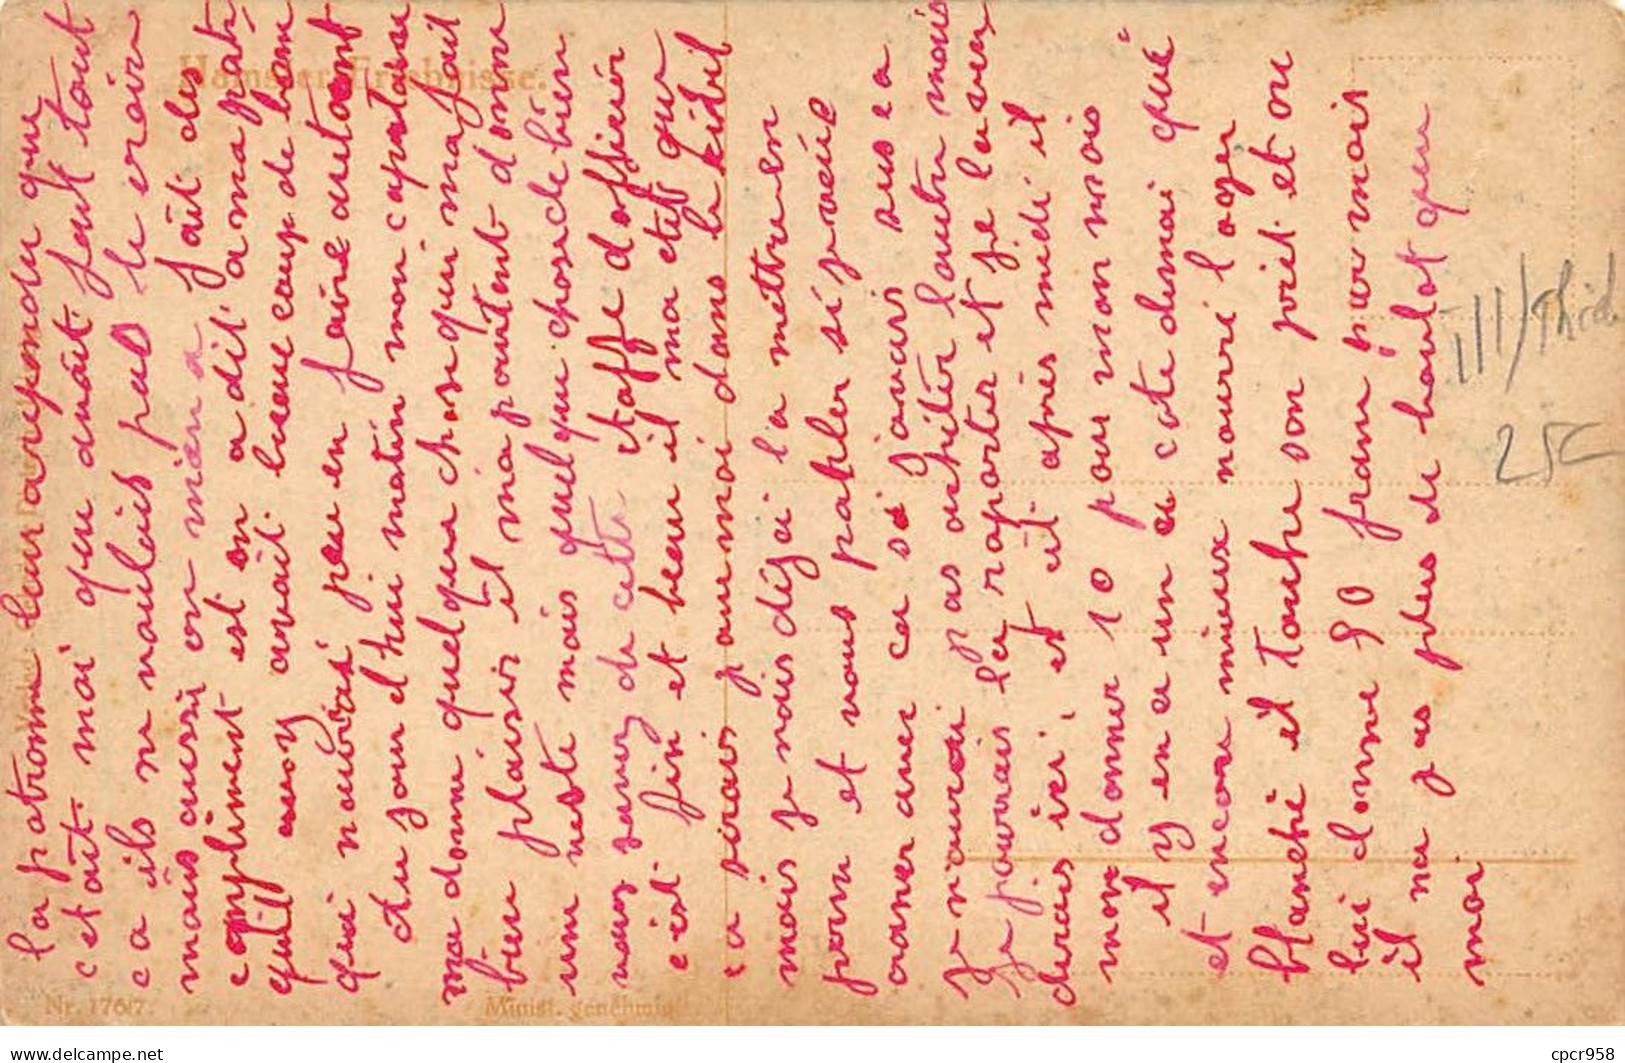 la patronne leur a repondu que
cetait moi qui avait fait tout
ca ils ne voulais pas le croire
mais aussi on mien a fait des
compliment est on a dit a ma patr
quil avait beaucoup de bonne
qui peu en faire autant
Au jour d'hui matin mon capitaine
ma donne quelque chose qui ma fait
bien plaisir il mapartent donne
une veste mais quelque chose de bien
vous savez de cette étoffe dofficier
c'est fin et beau il ma etet qur
ca serais pour moi dans le kibil
mais je vais déja la mettre en
perm et vous parler si je vais
avec ca si j'avais sus ca
je n'aurai pas achêter l'autre mois
Je pourrais la raporter et je laver
derais ici, et cit après midi il
mon donner 10 pour mon mois
il y en a un a cote demoi qué
et encore mieux nourri loger
blanchi il touche son prêt et on
lui donne 50 franc par mois
il na pas plus de boulot que
moi
III/Third
25€
Nr. 176/7
Minist. genehmigt
cpcr958